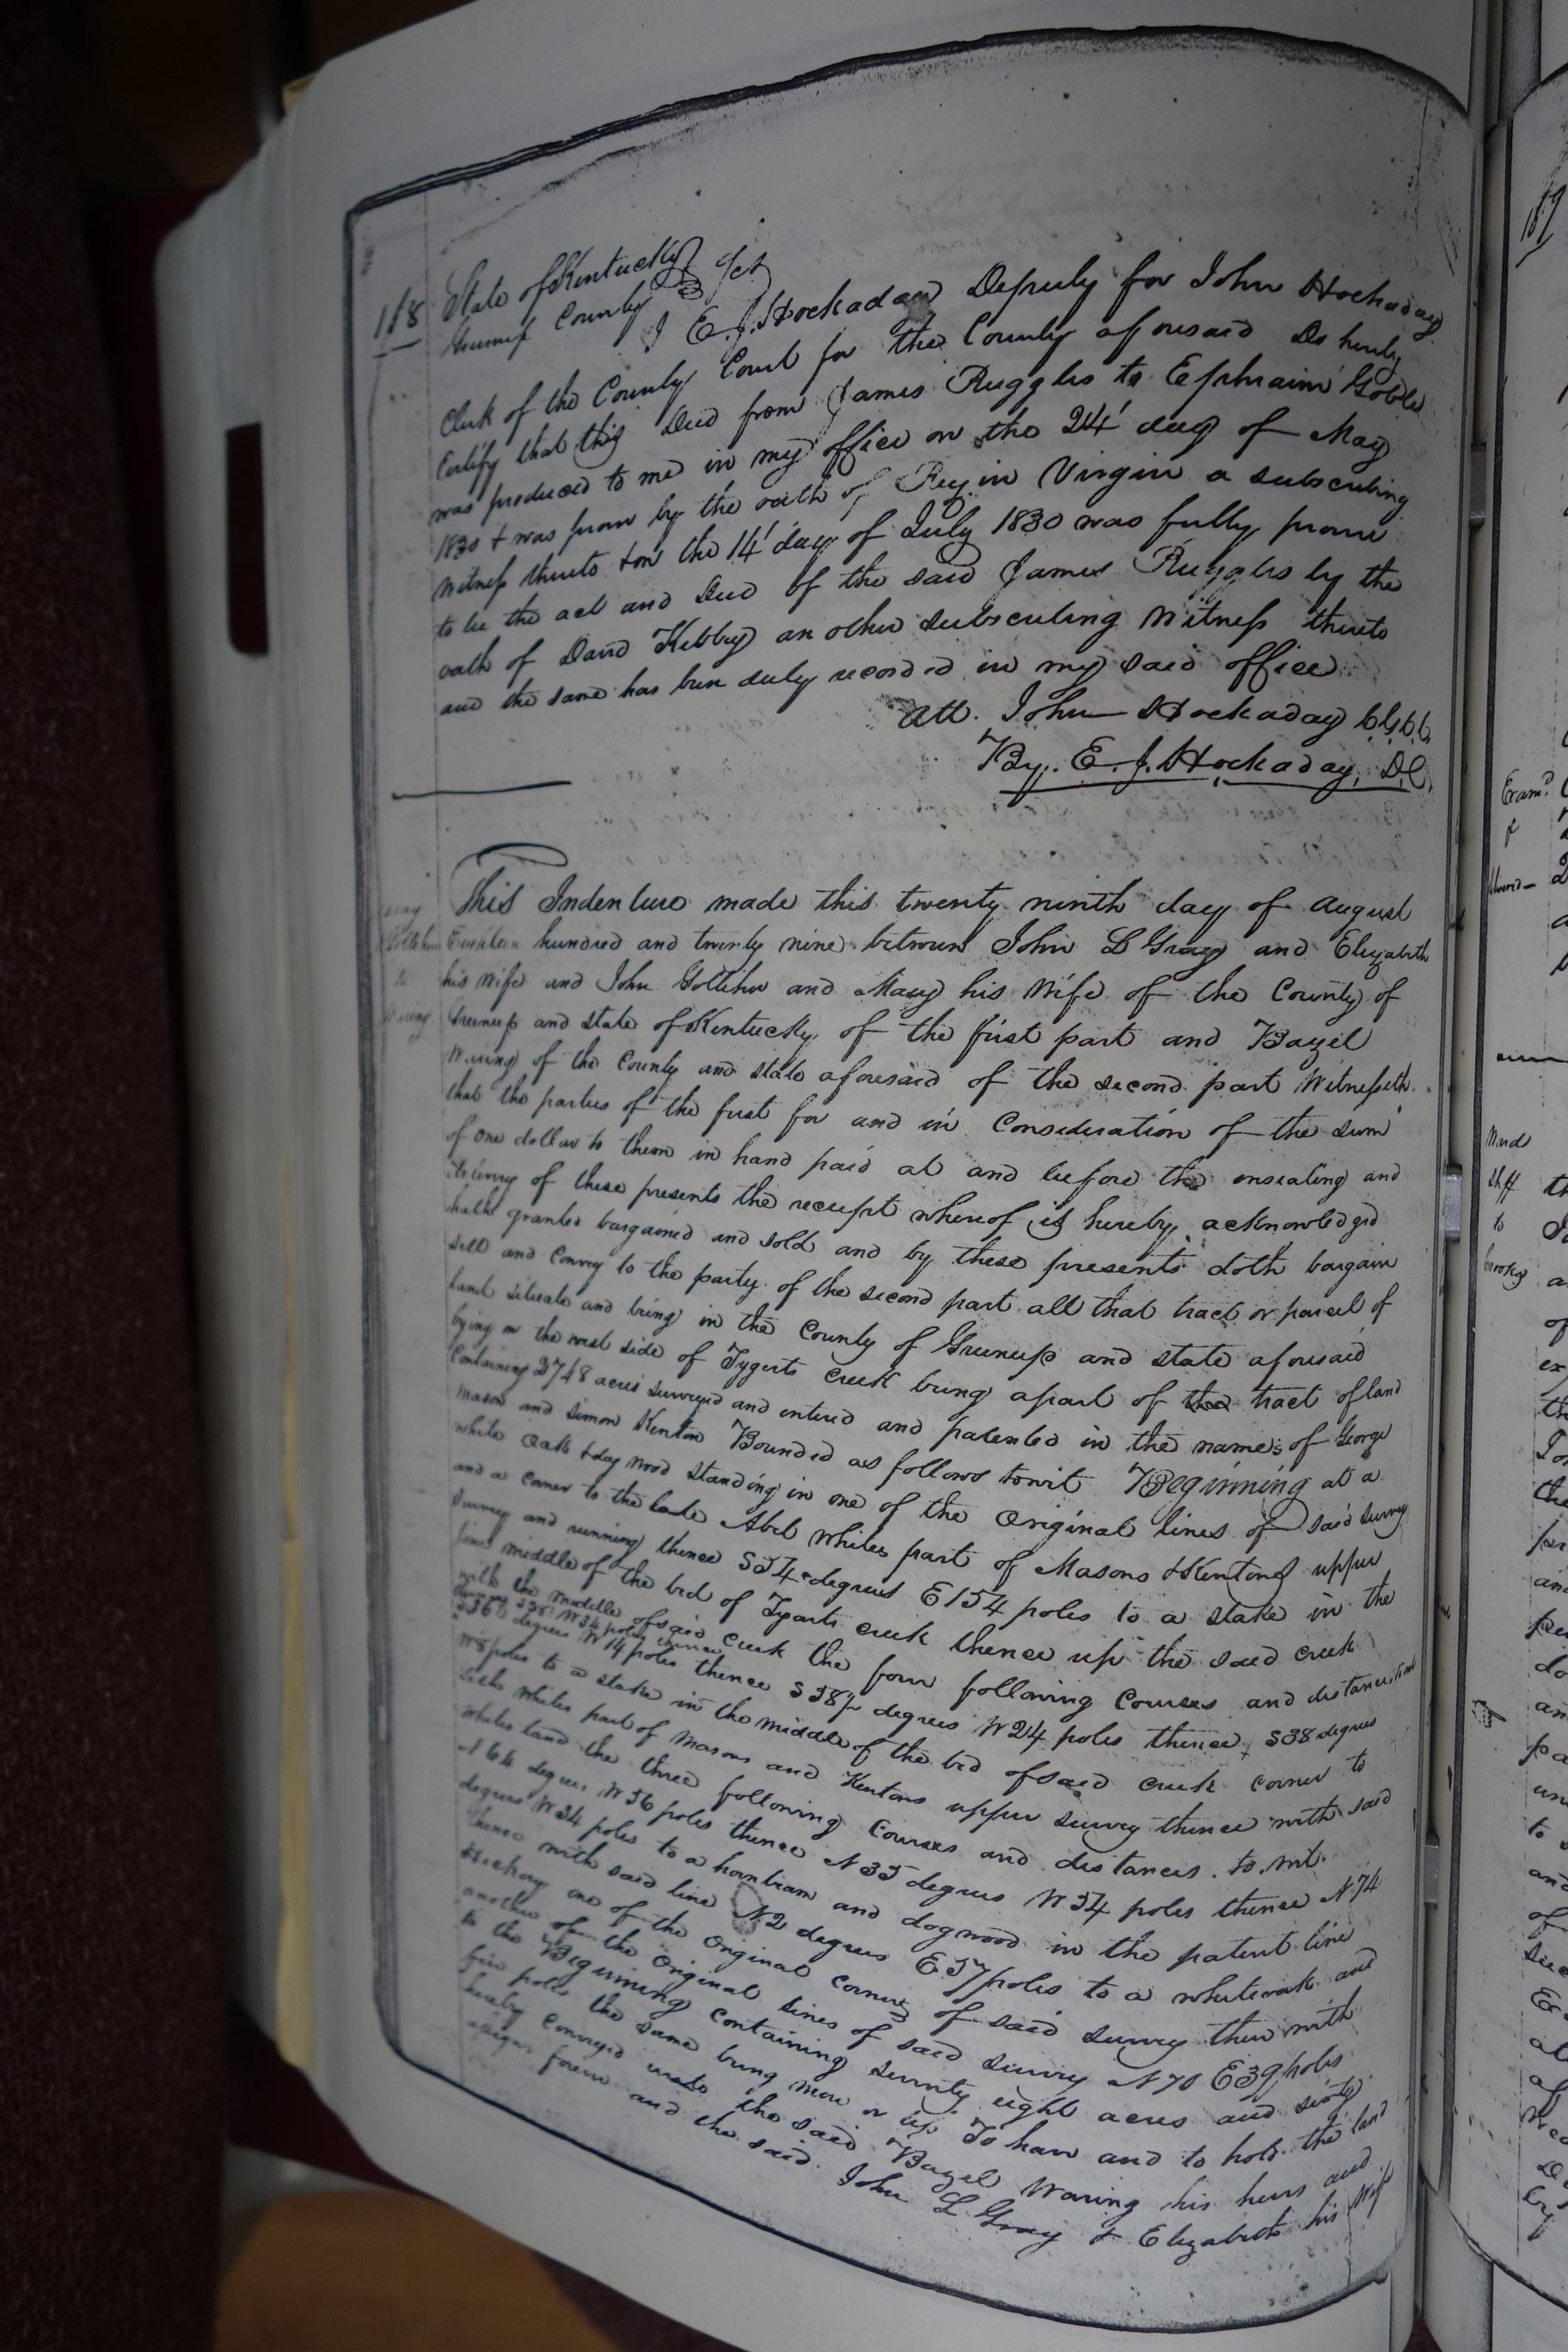 118 State of Kentucky
Greenup County Sct
I E. J. Hockaday Deputy for John Hockaday
Clerk of the County Court for the County aforesaid Do hereby
Certify that this Deed from James Ruggles to Ephraim Goble
was produced to me in my office on the 24' day of May
1830 & was proven by the oath of Rezin Virgin a subscribing
Witness thereto & on the 14' day of July 1830 was fully proven
to be the act and Deed of the said James Ruggles by the
oath of David Kibbey an other subscribing Witness thereto
and the same has been duly recorded in my said office
Att. John Hockaday Clk
By. E. J. Hockaday, D.C.
This Indenture made this twenty ninth day of August
Eighteen hundred and twenty nine between John L Gray and Elizabeth
his Wife and John Gollihu and Mary his Wife of the County of
Greenup and state of Kentucky of the first part and Bazel
Waring of the County and state aforesaid of the second part Witnesseth
that the parties of the first for and in Consideration of the sum
of one dollar to them in hand paid at and before the ensealing and
delivery of these presents the receipt whereof is hereby acknowledged
hath granted bargained and sold and by these presents doth bargain
sell and Convey to the party of the second part all that tract or parcel of
land situate and being in the County of Greenup and state aforesaid
lying on the west side of Tygerts creek being apart of the tract of land
Containing 2748 acres surveyed and entered and patented in the names of George
Mason and Simon Kenton Bounded as follows towit Beginning at a
white oak & dog wood standing in one of the Original lines of said survey
and a corner to the Abel Whites part of Masons & Kentons upper
survey and running thence S54 degrees E154 poles to a stake in the
middle of the bed of Tygarts creek thence up the said creek
with the middle of said Creek the four following Courses and distances
S38 W34 poles thence
S36 degrees W14 poles thence S38½ degrees W24 poles thence S38 degrees
W8 poles to a stake in the middle of the bed of said creek corner to
whites part of Masons and Kentons upper survey thence with said
whites land the three following Courses and distances to wit.
N64 degrees W56 poles thence N35 degrees W54 poles thence N74
degrees W34 poles to a hornbeam and dogwood in the patent line
thence with said line N2 degrees E57 poles to a whiteoak and
Hickory one of the Original corners of said survey then with
another of the Original lines of said survey N70 E39 poles
to the Beginning containing seventy eight acres and sixty
five poles the same being more or less To have and to hold the land
hereby Conveyed unto the said Bazel Waring his heirs and
assigns forever and the said John L Gray & Elizabeth his Wife